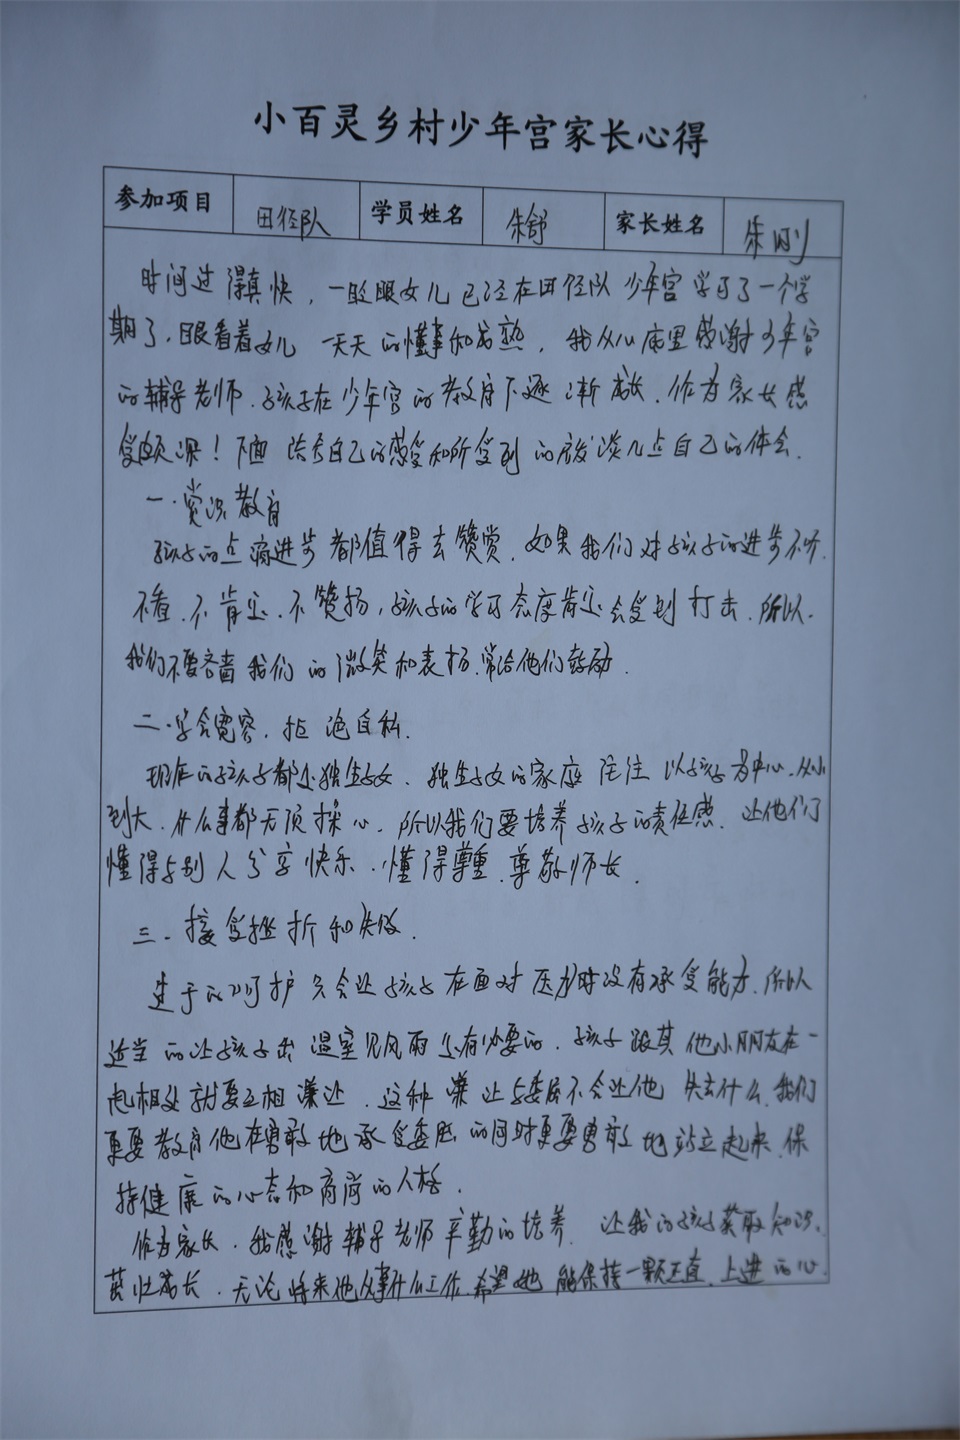 小百灵乡村少年宫家长心得
参加项目 田径队 学员姓名 朱舒 家长姓名 朱刚
时间过得真快，一眨眼女儿已经在田径队少年宫学习了一个学
期了，眼看着女儿一天天的懂事和成熟，我从心底里感谢少年宫
的辅导老师．孩子在少年宫的教育下逐渐成长．作为家长感
受颇深！下面结合自己的感受和所受到的启发谈几点自己的体会．
一．赏识教育
孩子的点滴进步都值得去赞赏．如果我们对孩子的进步不听．
不看．不肯定．不赞扬，孩子的学习态度肯定会受到打击．所以．
我们不要吝啬我们的微笑和表扬．常给他们鼓励．
二．学会宽容．拒绝自私．
现在的孩子都是独生子女．独生子女的家庭往往以孩子为中心．从小
到大．什么事都无须操心．所以我们要培养孩子的责任感．让他们
懂得与别人分享快乐．懂得尊重．尊敬师长．
三．接受挫折和失败．
过于的呵护只会让孩子在面对压力时没有承受能力．所以
适当的让孩子出温室见风雨是有必要的．孩子跟其他小朋友在一
起相处就要互相谦让．这种谦让与委屈不会让他失去什么．我们
更要教育他在勇敢地承受委屈的同时更要勇敢地站立起来．保
持健康的心态和高尚的人格．
作为家长．我感谢辅导老师辛勤的培养．让我的孩子获取知识．
茁壮成长．无论将来他从事什么工作．希望她能保持一颗正直．上进的心．